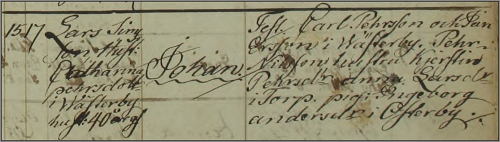 15. 17 Lars Jüng
son. Hust:
Catharina
pehrsdott:
i Wästerby
hust: 40 årg
Johan
Test. Carl Pehrsson och Jan
Ersson i Wästerby. Pehr
Nilssons hustru kierstin
Pehrsdr. anna Larsdr
i Torp. pig: Ingeborg
andersdr i Österby.